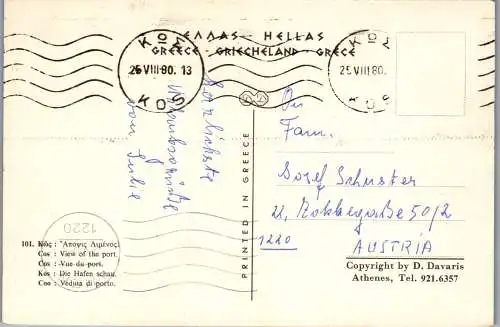 ΕΛΛΑΣ - HELLAS
GREECE - GRIECHELAND - GRECE
ΚΩΣ
25 VIII 80. 13
KOS
ΚΩΣ
25 VIII 80.
KOS
Herzlichste
Urlaubsgrüße
von Julie
PRINTED IN GREECE
An
Fam.
Josef Schuster
22,
50/2
1220
AUSTRIA
1220
101. Κῶς: Ἄποψις Λιμένος.
Cos : View of the port.
Cos : Vue du port.
Kos : Die Hafen schau.
Coo : Veduta di porto.
Copyright by D. Davaris
Athenes, Tel. 921.6357